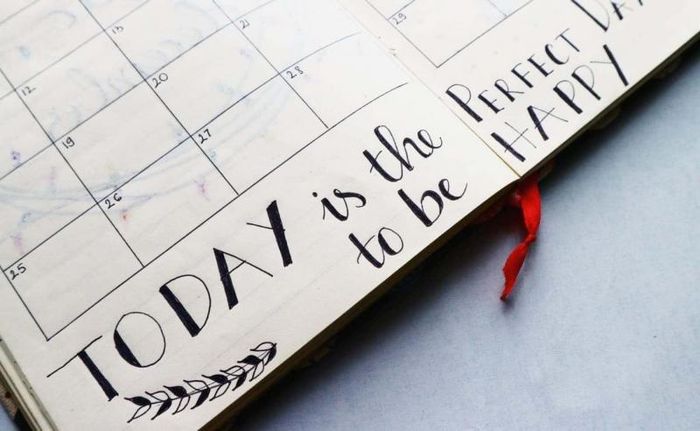 13
21
12
20
28
19
27
26
25
29
TODAY is the
to be
PERFECT DAY
HAPPY